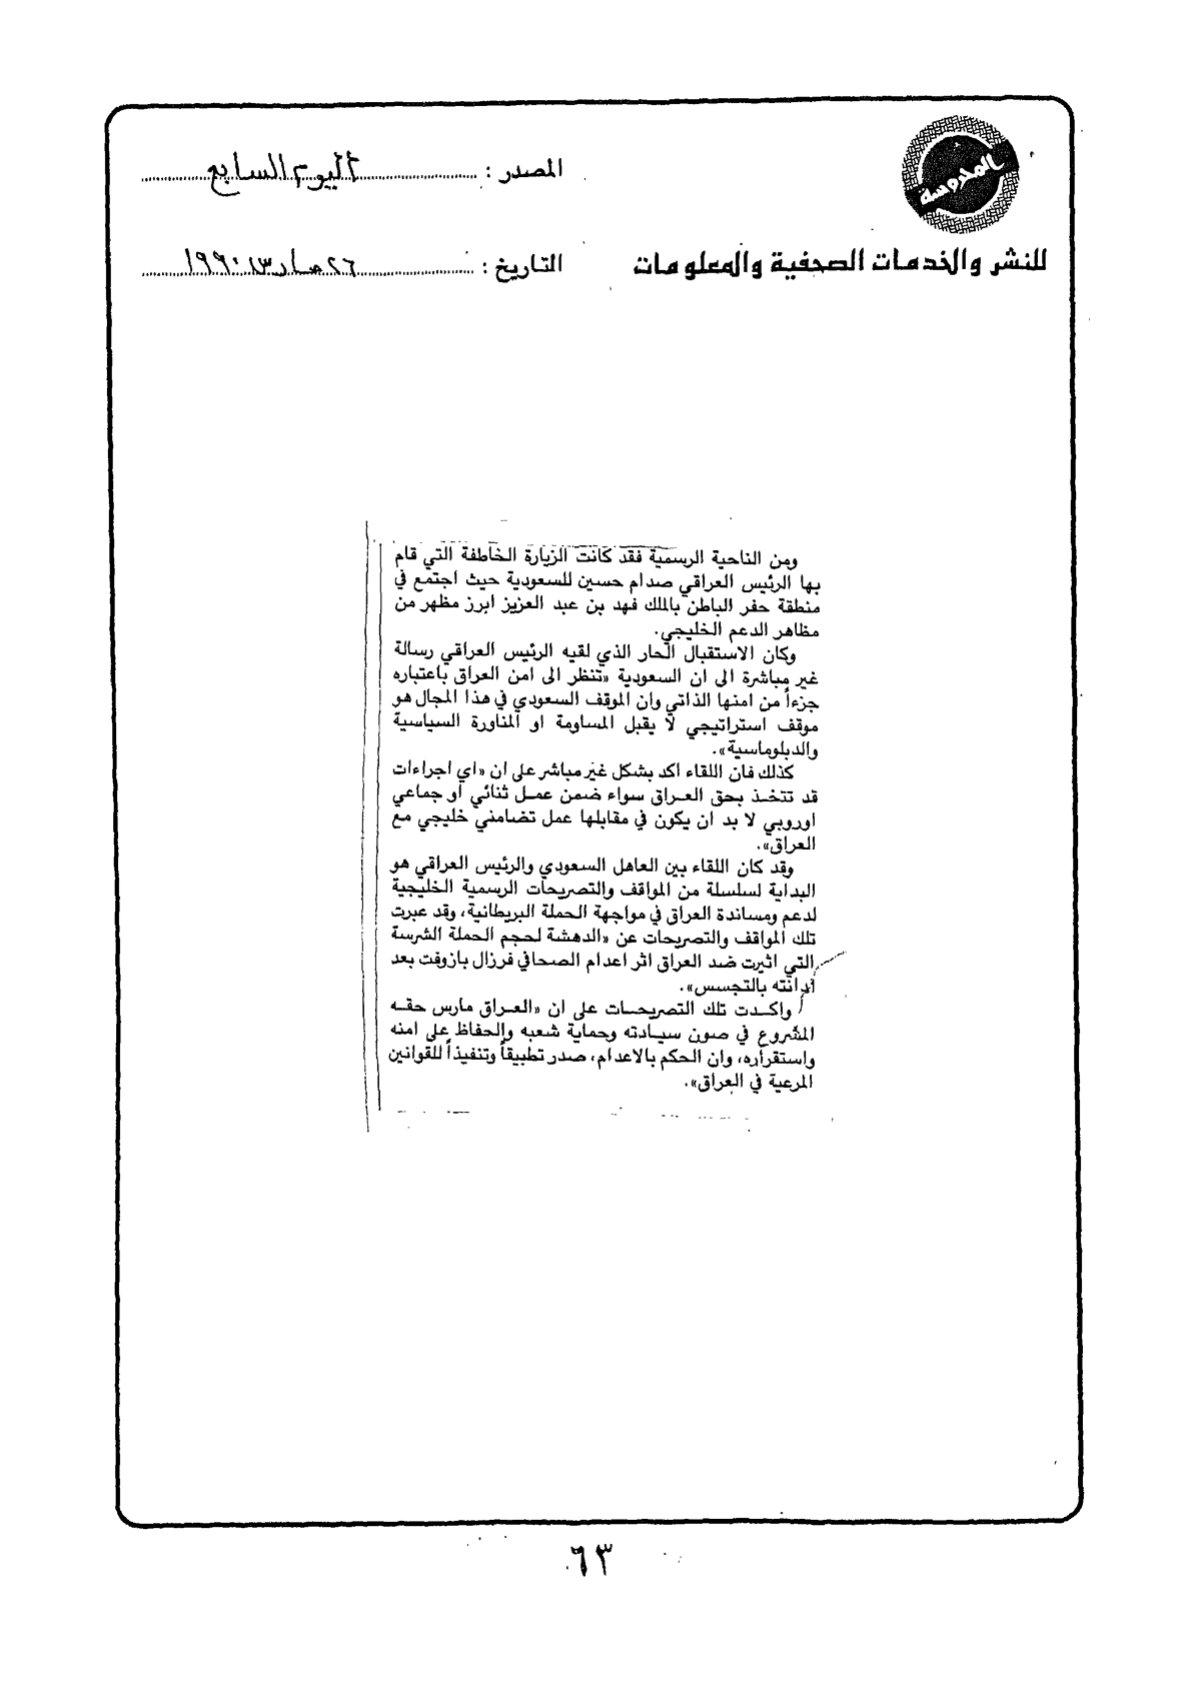 المحروسة
المصدر : اليوم السابع
للنشر والخدمات الصحفية والمعلومات
التاريخ : ٢٦ مارس ١٩٩٠
ومن الناحية الرسمية فقد كانت الزيارة الخاطفة التي قام
بها الرئيس العراقي صدام حسين للسعودية حيث اجتمع في
منطقة حفر الباطن بالملك فهد بن عبد العزيز ابرز مظهر من
مظاهر الدعم الخليجي.
وكان الاستقبال الحار الذي لقيه الرئيس العراقي رسالة
غير مباشرة الى ان السعودية «تنظر الى امن العراق باعتباره
جزءاً من امنها الذاتي وان الموقف السعودي في هذا المجال هو
موقف استراتيجي لا يقبل المساومة او المناورة السياسية
والدبلوماسية».
كذلك فان اللقاء اكد بشكل غير مباشر على ان «اي اجراءات
قد تتخذ بحق العراق سواء ضمن عمل ثنائي او جماعي
اوروبي لا بد ان يكون في مقابلها عمل تضامني خليجي مع
العراق».
وقد كان اللقاء بين العاهل السعودي والرئيس العراقي هو
البداية لسلسلة من المواقف والتصريحات الرسمية الخليجية
لدعم ومساندة العراق في مواجهة الحملة البريطانية، وقد عبرت
تلك المواقف والتصريحات عن «الدهشة لحجم الحملة الشرسة
التي اثيرت ضد العراق اثر اعدام الصحافي فرزال بازوفت بعد
ادانته بالتجسس».
واكدت تلك التصريحات على ان «العراق مارس حقه
المشروع في صون سيادته وحماية شعبه والحفاظ على امنه
واستقراره، وان الحكم بالاعدام، صدر تطبيقاً وتنفيذاً للقوانين
المرعية في العراق».
٦٣